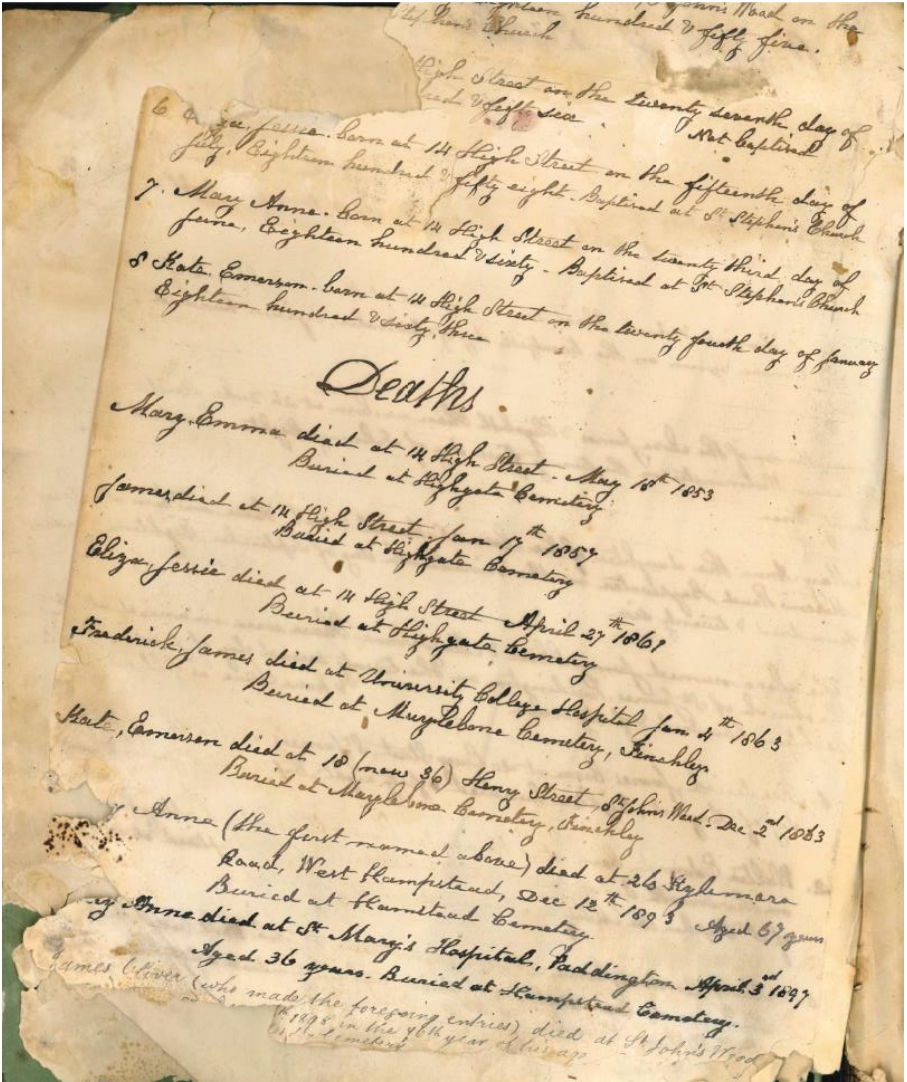 Wood on the
hundred & fifty five.
Stephen's Church
High Street on the twenty seventh day of
& fifty six. Not baptised
6 Jessie. born at 14 High Street on the fifteenth day of
July, Eighteen hundred & fifty eight. Baptised at St Stephen's Church
7. Mary Anne. born at 14 High Street on the twenty third day of
June, Eighteen hundred & sixty - Baptised at St Stephen's Church
8 Kate, Emerson. born at 14 High Street on the twenty fourth day of January
Eighteen hundred & sixty three
Deaths
Mary Emma died at 14 High Street. May 18th 1853
Buried at Highgate Cemetery
James, died at 14 High Street. Jan 17th 1857
Buried at Highgate Cemetery
Eliza, Jessie died at 14 High Street April 27th 1861
Buried at Highgate Cemetery
Frederick, James died at University College Hospital Jan 4th 1863
Buried at Marylebone Cemetery, Finchley
Kate, Emerson died at 18 (now 36) Henry Street, St John's Wood. Dec 2nd 1863
Buried at Marylebone Cemetery, Finchley
Anne (the first named above) died at 26 Kylemore
Road, West Hampstead, Dec 12th 1893 Aged 67 years
Buried at Hamstead Cemetery
Anne died at St Mary's Hospital, Paddington April 3rd 1897
Aged 36 years. Buried at Hampstead Cemetery.
James Oliver (who made the foregoing entries) died at St John's Wood
1898 in the 76th year of his age
Cemetery